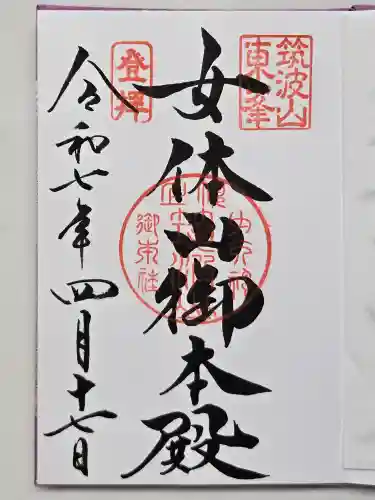 筑波山
東峯
女体山御本殿
登拝
令和七年四月十七日